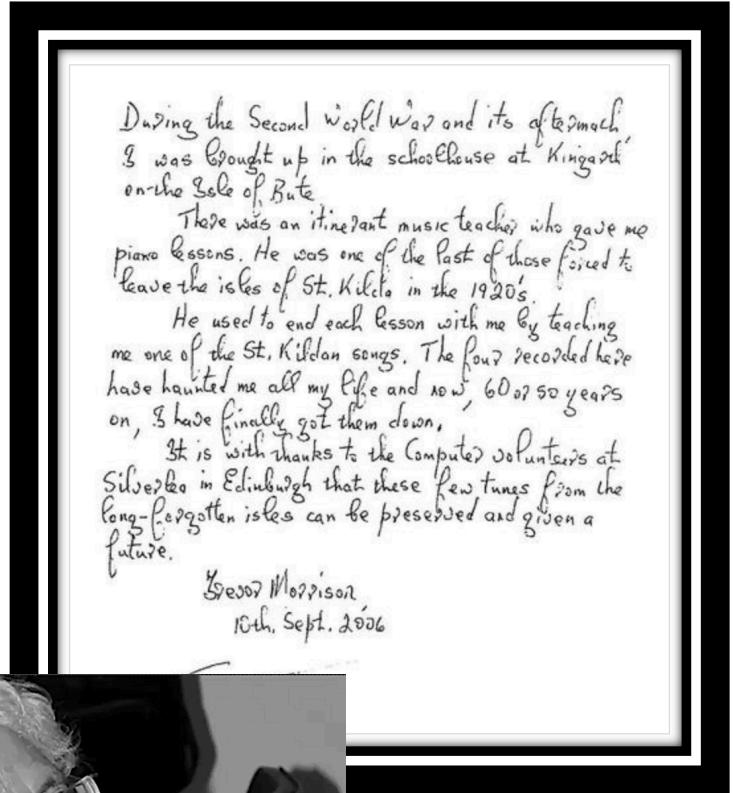 During the Second World War and its aftermach,
I was brought up in the schoolhouse at 'Kingarth'
on-the Isle of Bute
There was an itinerant music teacher who gave me
piano lessons. He was one of the last of those forced to
leave the isles of St. Kilda in the 1920's.
He used to end each lesson with me by teaching
me one of the St. Kildan songs. The four recorded here
have haunted me all my life and now, 60 or so years
on, I have finally got them down.
It is with thanks to the Computer volunteers at
Silverlea in Edinburgh that these few tunes from the
long-forgotten isles can be preserved and given a
future.
Trevor Morrison
10th. Sept. 2006